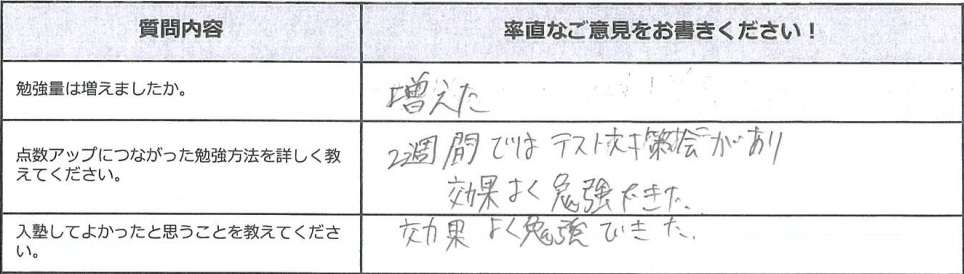 質問内容
率直なご意見をお書きください！
勉強量は増えましたか。
増えた
点数アップにつながった勉強方法を詳しく教
えてください。
2週間ではテスト対策会があり
効果よく勉強できた.
入塾してよかったと思うことを教えてくださ
い。
効果よく勉強できた.